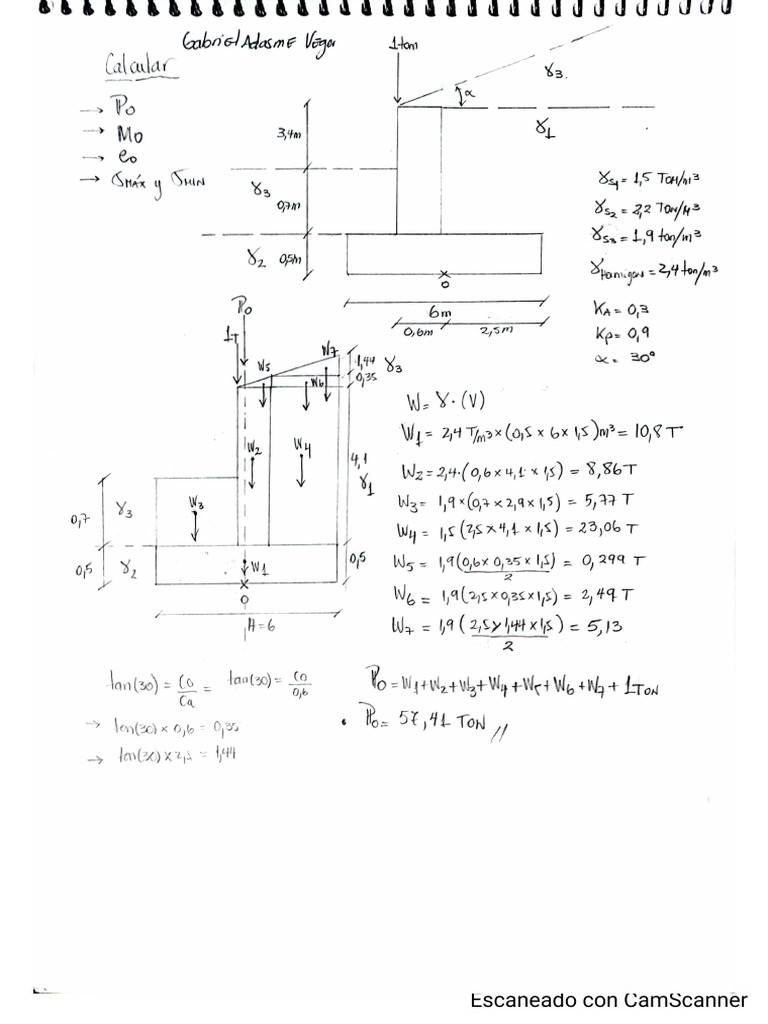 Gabriel Adasme Vega
Calcular
→ Po
→ Mo
→ eo
→ σMÁX y σMIN
1 ton
γ3.
α
γ1
3,4m
γ3
0,7m
γ2 0,5m
0
6m
0,6m 2,5m
γS1 = 1,5 TON/m³
γS2 = 2,2 TON/M³
γS3 = 1,9 ton/m³
γHormigon = 2,4 ton/m³
KA = 0,3
Kp = 0,9
α = 30°
Po
1T
W5
W7
W6
1,44 γ3
0,35
W2
W4
4,1
γ1
W3
0,7 γ3
0,5 γ2
W1
0,5
0
H=6
W = γ · (V)
W1 = 2,4 T/m³ × (0,5 × 6 × 1,5)m³ = 10,8 T
W2 = 2,4·(0,6 × 4,1 × 1,5) = 8,86 T
W3 = 1,9 × (0,7 × 2,9 × 1,5) = 5,77 T
W4 = 1,5 (2,5 × 4,1 × 1,5) = 23,06 T
W5 = 1,9 (0,6 × 0,35 × 1,5) = 0,299 T
2
W6 = 1,9 (2,5 × 0,35 × 1,5) = 2,49 T
W7 = 1,9 (2,5 × 1,44 × 1,5) = 5,13
2
tan(30) = CO/Ca = tan(30) = CO/0,6
→ ten(30) × 0,6 = 0,35
→ tan(30) × 2,5 = 1,44
Po = W1 + W2 + W3 + W4 + W5 + W6 + W7 + 1 TON
• Po = 57,41 TON //
Escaneado con CamScanner